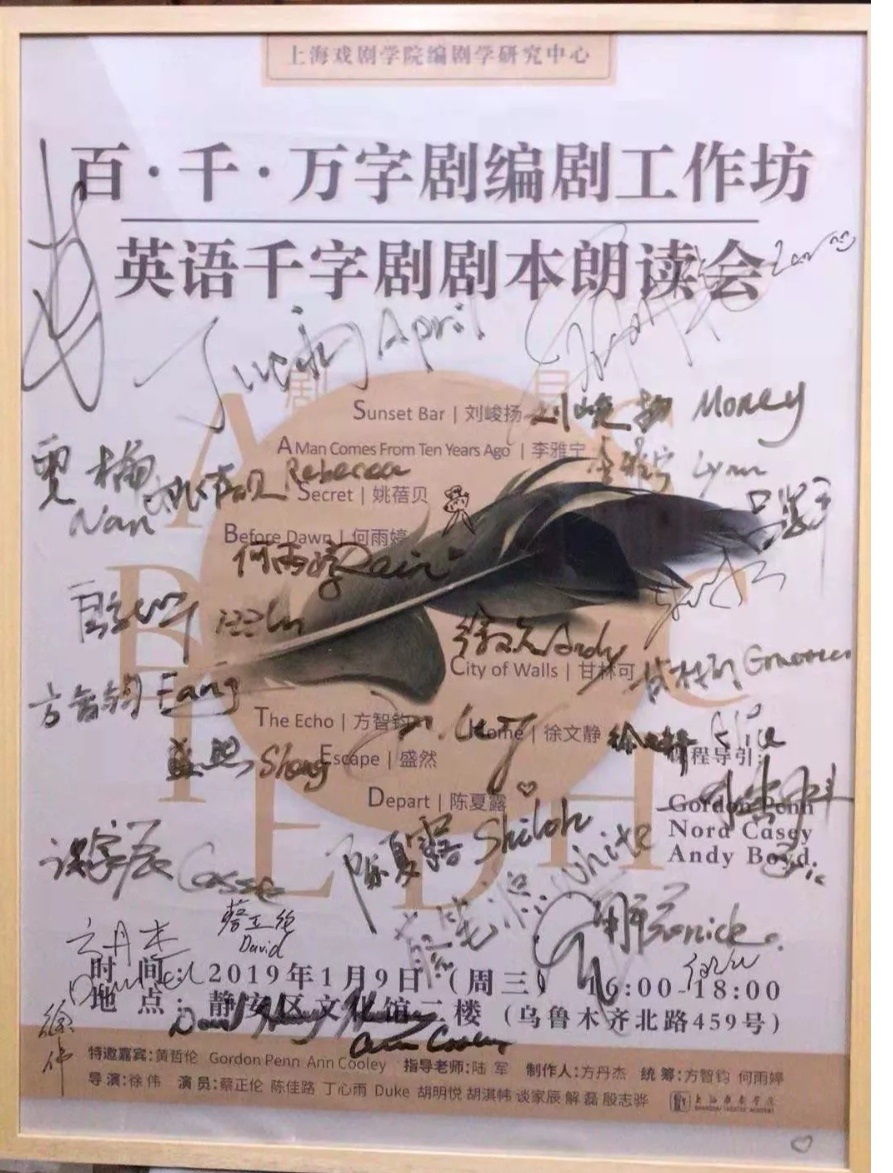 上海戏剧学院编剧学研究中心
百·千·万字剧编剧工作坊
英语千字剧剧本朗读会
April
剧
Sunset Bar | 刘峻扬 刘峻扬 Money
A Man Comes From Ten Years Ago | 李雅宁 李雅宁 Lynn
Rebecca
Nan
Secret | 姚蓓贝
Before Dawn | 何雨婷
何雨婷 Rain
Andy
City of Walls | 甘林可 甘林可
方智钧 Fang
The Echo | 方智钧
Home | 徐文静 徐文静
盛然 Sheng
Escape | 盛然
课程导引:
Depart | 陈夏露
Gordon Penn
Nora Casey
Andy Boyd
陈夏露 Shiloh
White
谈家辰
蔡正伦
David
方丹杰
时 间: 2019年1月9日 (周三) 16:00-18:00
地 点: 静安区文化馆二楼 (乌鲁木齐北路459号)
徐伟
Ann Cooley
特邀嘉宾:黄哲伦 Gordon Penn Ann Cooley 指导老师:陆 军 制作人:方丹杰 统 筹:方智钧 何雨婷
导 演:徐 伟 演 员:蔡正伦 陈佳路 丁心雨 Duke 胡明悦 胡淇帏 谈家辰 解 磊 殷志骅 上海戏剧学院
SHANGHAI THEATRE ACADEMY